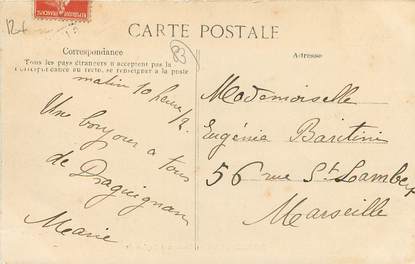 12f
CARTE POSTALE
83
Correspondance
Tous les pays étrangers n'acceptent pas la
correspondance au recto, se renseigner à la poste
matin 10 heure 1/2.
Un bonjour a tous
de Draguignan
Marie
Adresse
Mademoiselle
Eugénia Baritini
56 rue St Lambert
Marseille